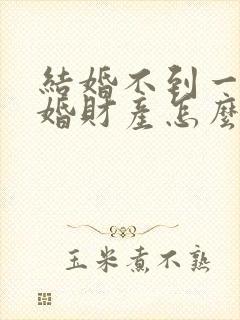 結婚不到一
婚財産怎麼
玉米煮不熟